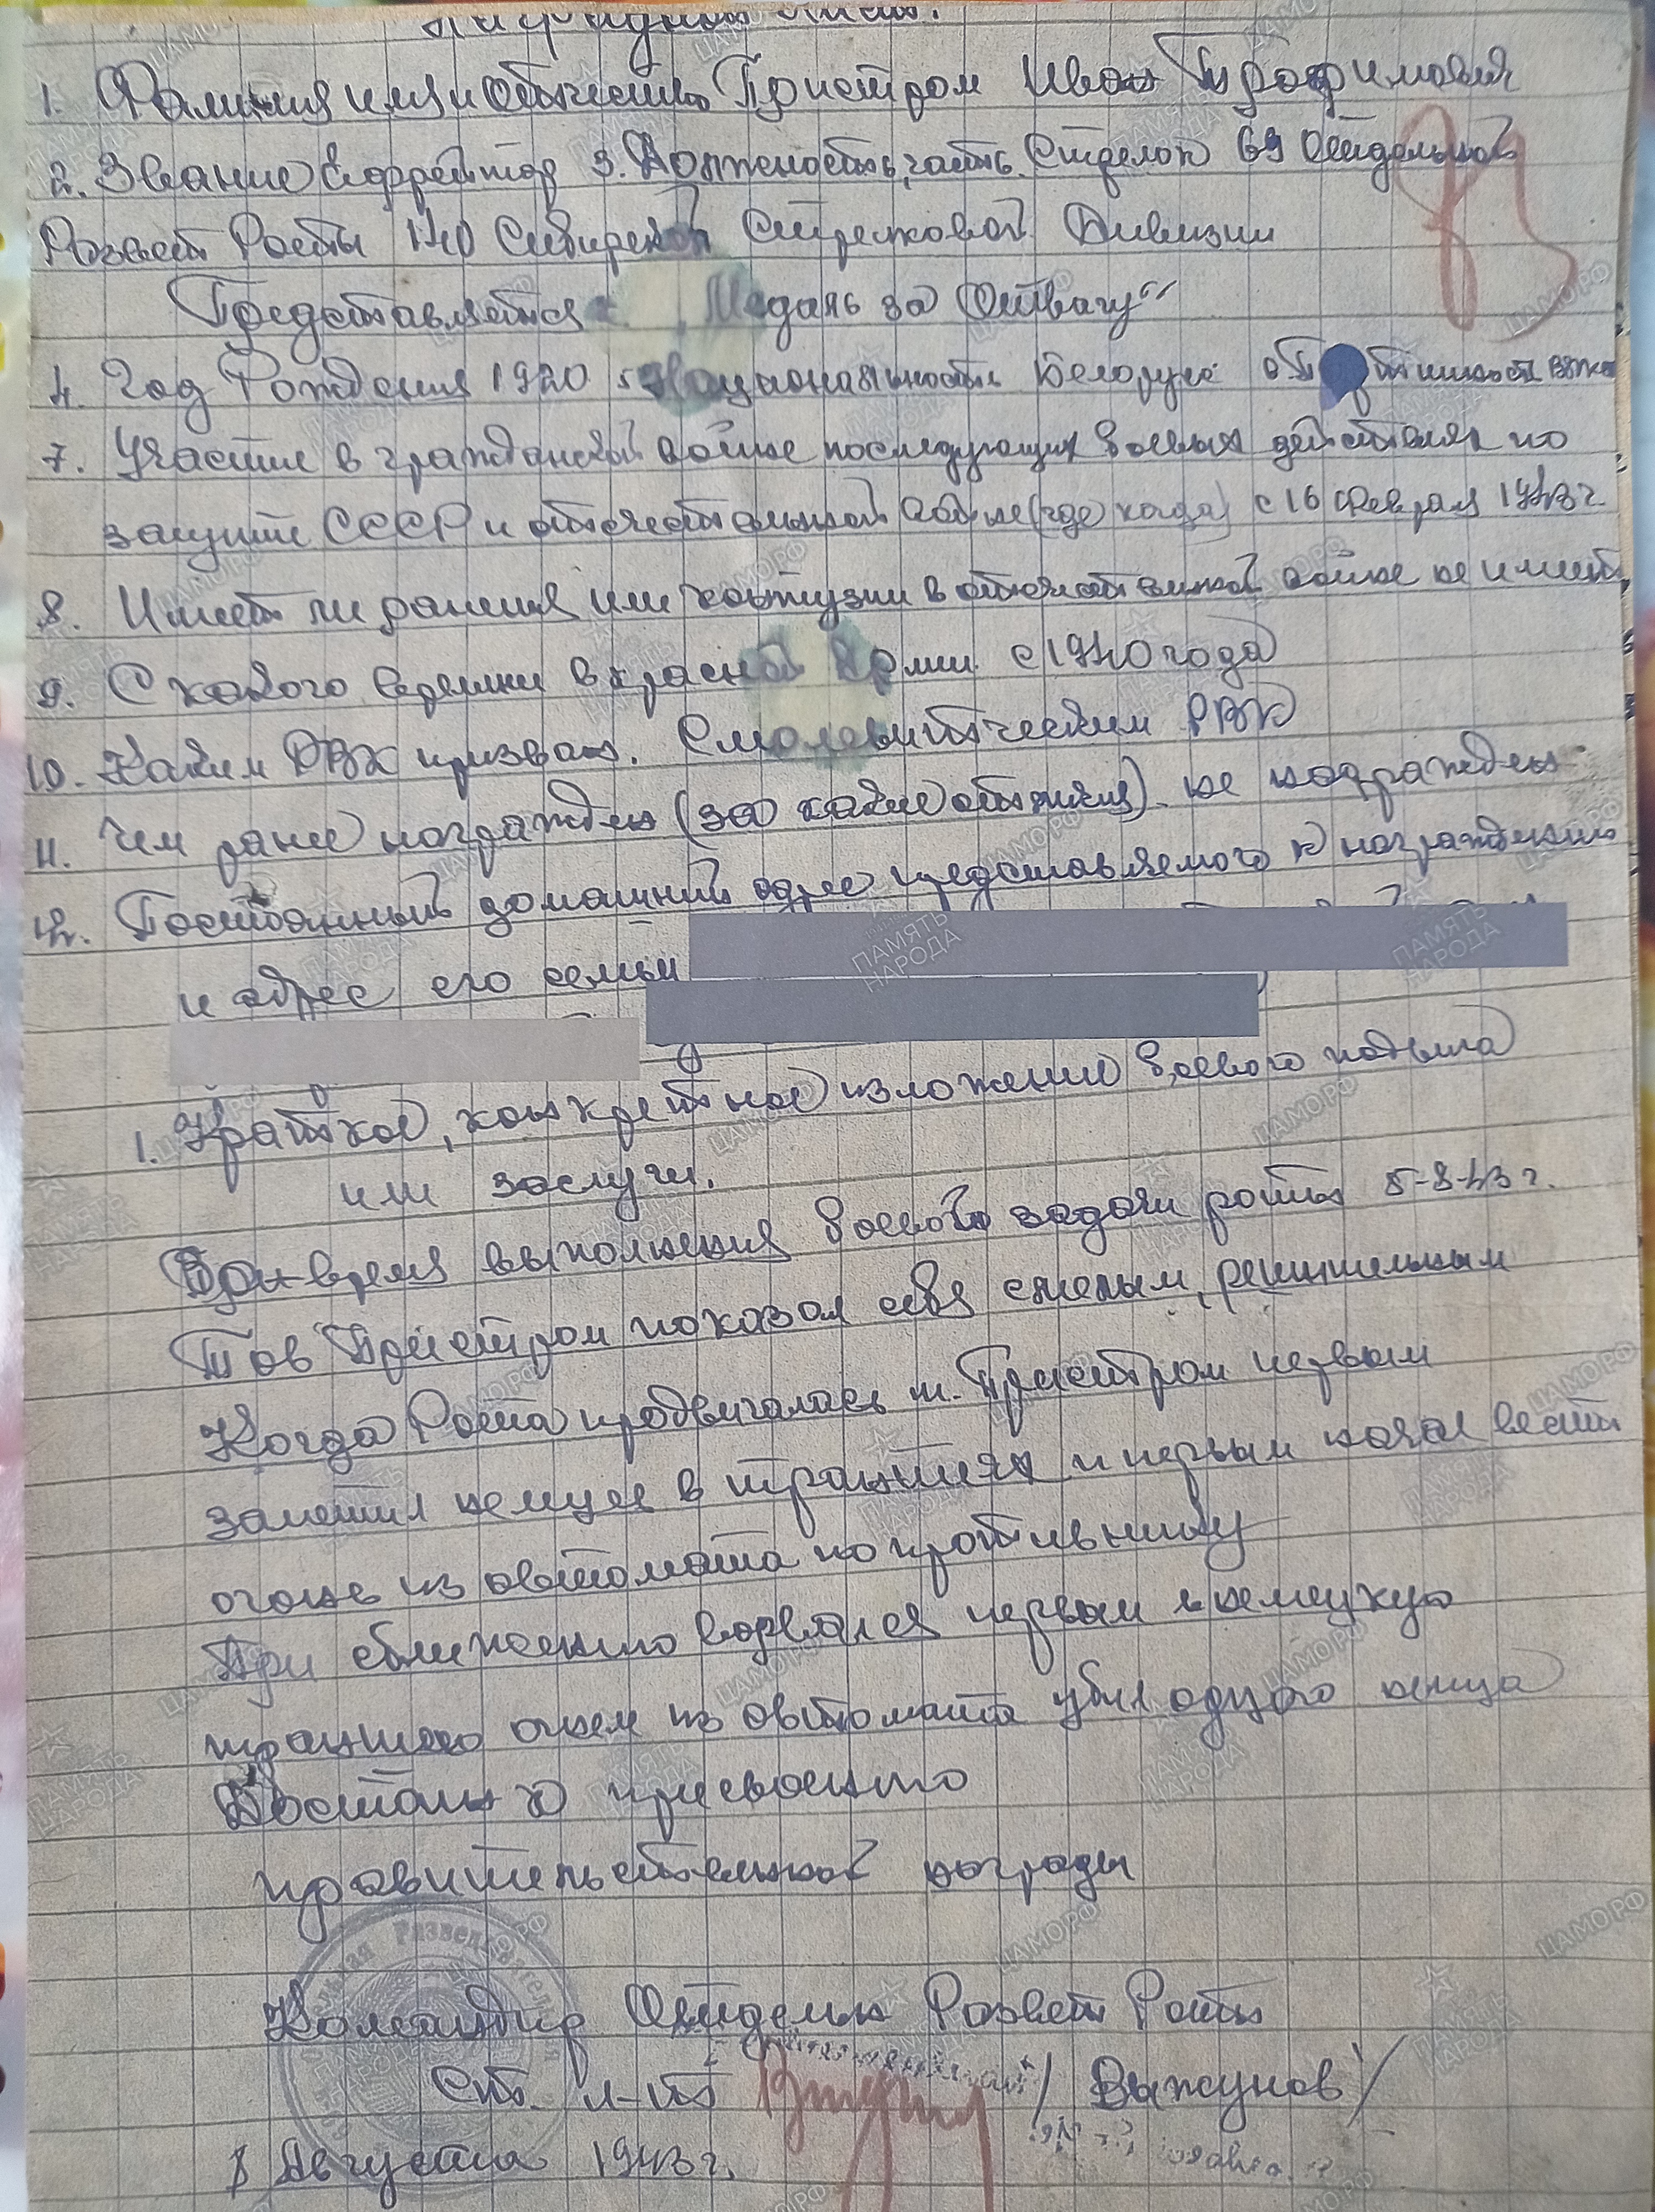 Наградной лист.
1. Фамилия имя и Отчество Пристром Иван Трофимович
2. Звание Ефрейтор 3. Должность, часть Стрелок 69 Отдельной
Развед Роты 140 Сибирской Стрелковой Дивизии
Представляется к „Медаль за Отвагу“
4. Год Рождения 1920 5 Национальность Белорус 6 партийность
7. Участие в гражданской войне последующих боевых действиях по
защите СССР и отечественной войне (где когда) с 16 февраля 1943 г.
8. Имеет ли ранения или контузии в отечественной войне не имеет
9. С какого времени в красной Армии с 1940 года
10. Каким РВК призван. Смолевитическим РВК
11. Чем ранее награжден (за какие отличия). не награжден
12. Постоянный домашний адрес представляемого к награждению
и адрес его семьи
1. Краткое, конкретное изложение боевого подвига
или заслуги.
время выполнения боевого задачи роты 5-8-43 г.
Тов Пристром показал себя смелым, решительным
Когда Рота продвигалась т. Пристром первым
заметил немцев в траншеях и первым начал вести
огонь из автомата по противнику
При сближению ворвался первым в немецкую
траншею огнем из автомата убил одного немца
Достоин к присвоению
правительственной награды
Командир Отдельн Развед Роты
Ст. л-т / Выжунов /
8 Августа 1943 г.